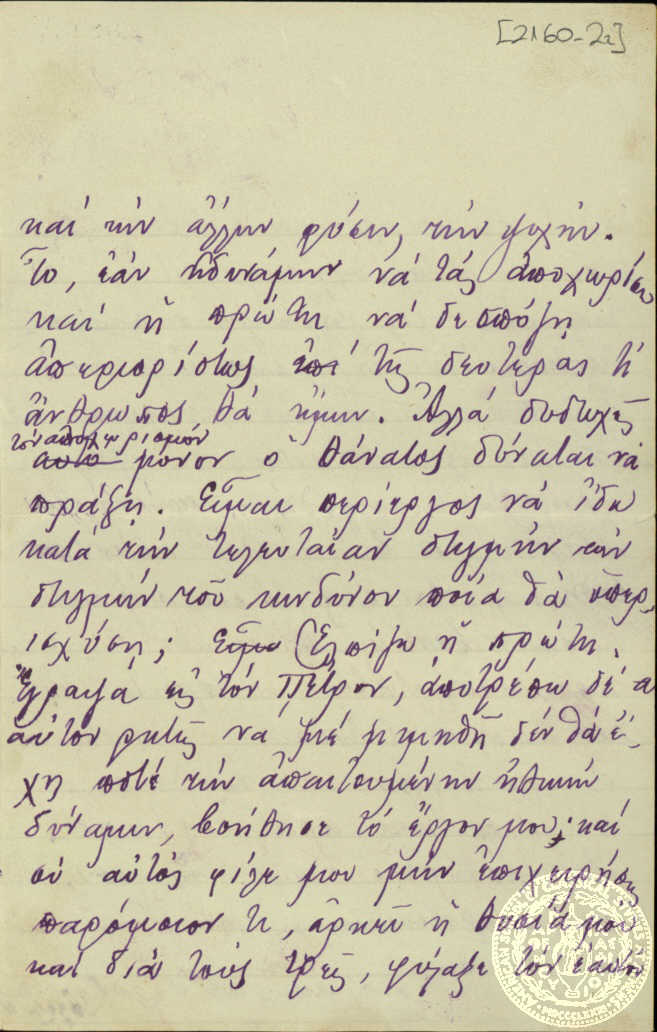 [2160-2α]
καί τήν ἄλλην φύσιν, τήν ψυχήν.
Ὤ, ἐάν ἠδυνάμην νά τάς ἀποχωρίσω
καί ἡ πρώτη νά δεσπόζῃ
ἀπεριορίστως ἐπί τῆς δευτέρας τί
ἄνθρωπος θά ἤμην. Ἀλλά δυστυχῶς
τόν ἀποχωρισμόν
αὐτό μόνον ὁ θάνατος δύναται νά
πράξῃ. Εἶμαι περίεργος νά ἴδω
κατά τήν τελευταίαν στιγμήν τήν
στιγμήν τοῦ κινδύνου ποία θά ὑπερ-
ισχύσῃ; Εἶμαι (Ἐλπίζω ἡ πρώτη.
Ἔγραψα εἰς τόν Πέτρον, ἀποτρέπω δέ
αὐτόν ρητῶς νά μέ μιμηθῇ δέν θά ἔ-
χῃ ποτέ τήν ἀπαιτουμένην ἠθικήν
δύναμιν, βοήθησε τό ἔργον μου· καί
σύ αὐτός φίλε μου μήν ἐπιχειρήσῃς
παρόμοιον τι, ἀρκεῖ ἡ θυσία μου
καί διά τούς τρεῖς, φύλαξε τόν ἑαυτόν